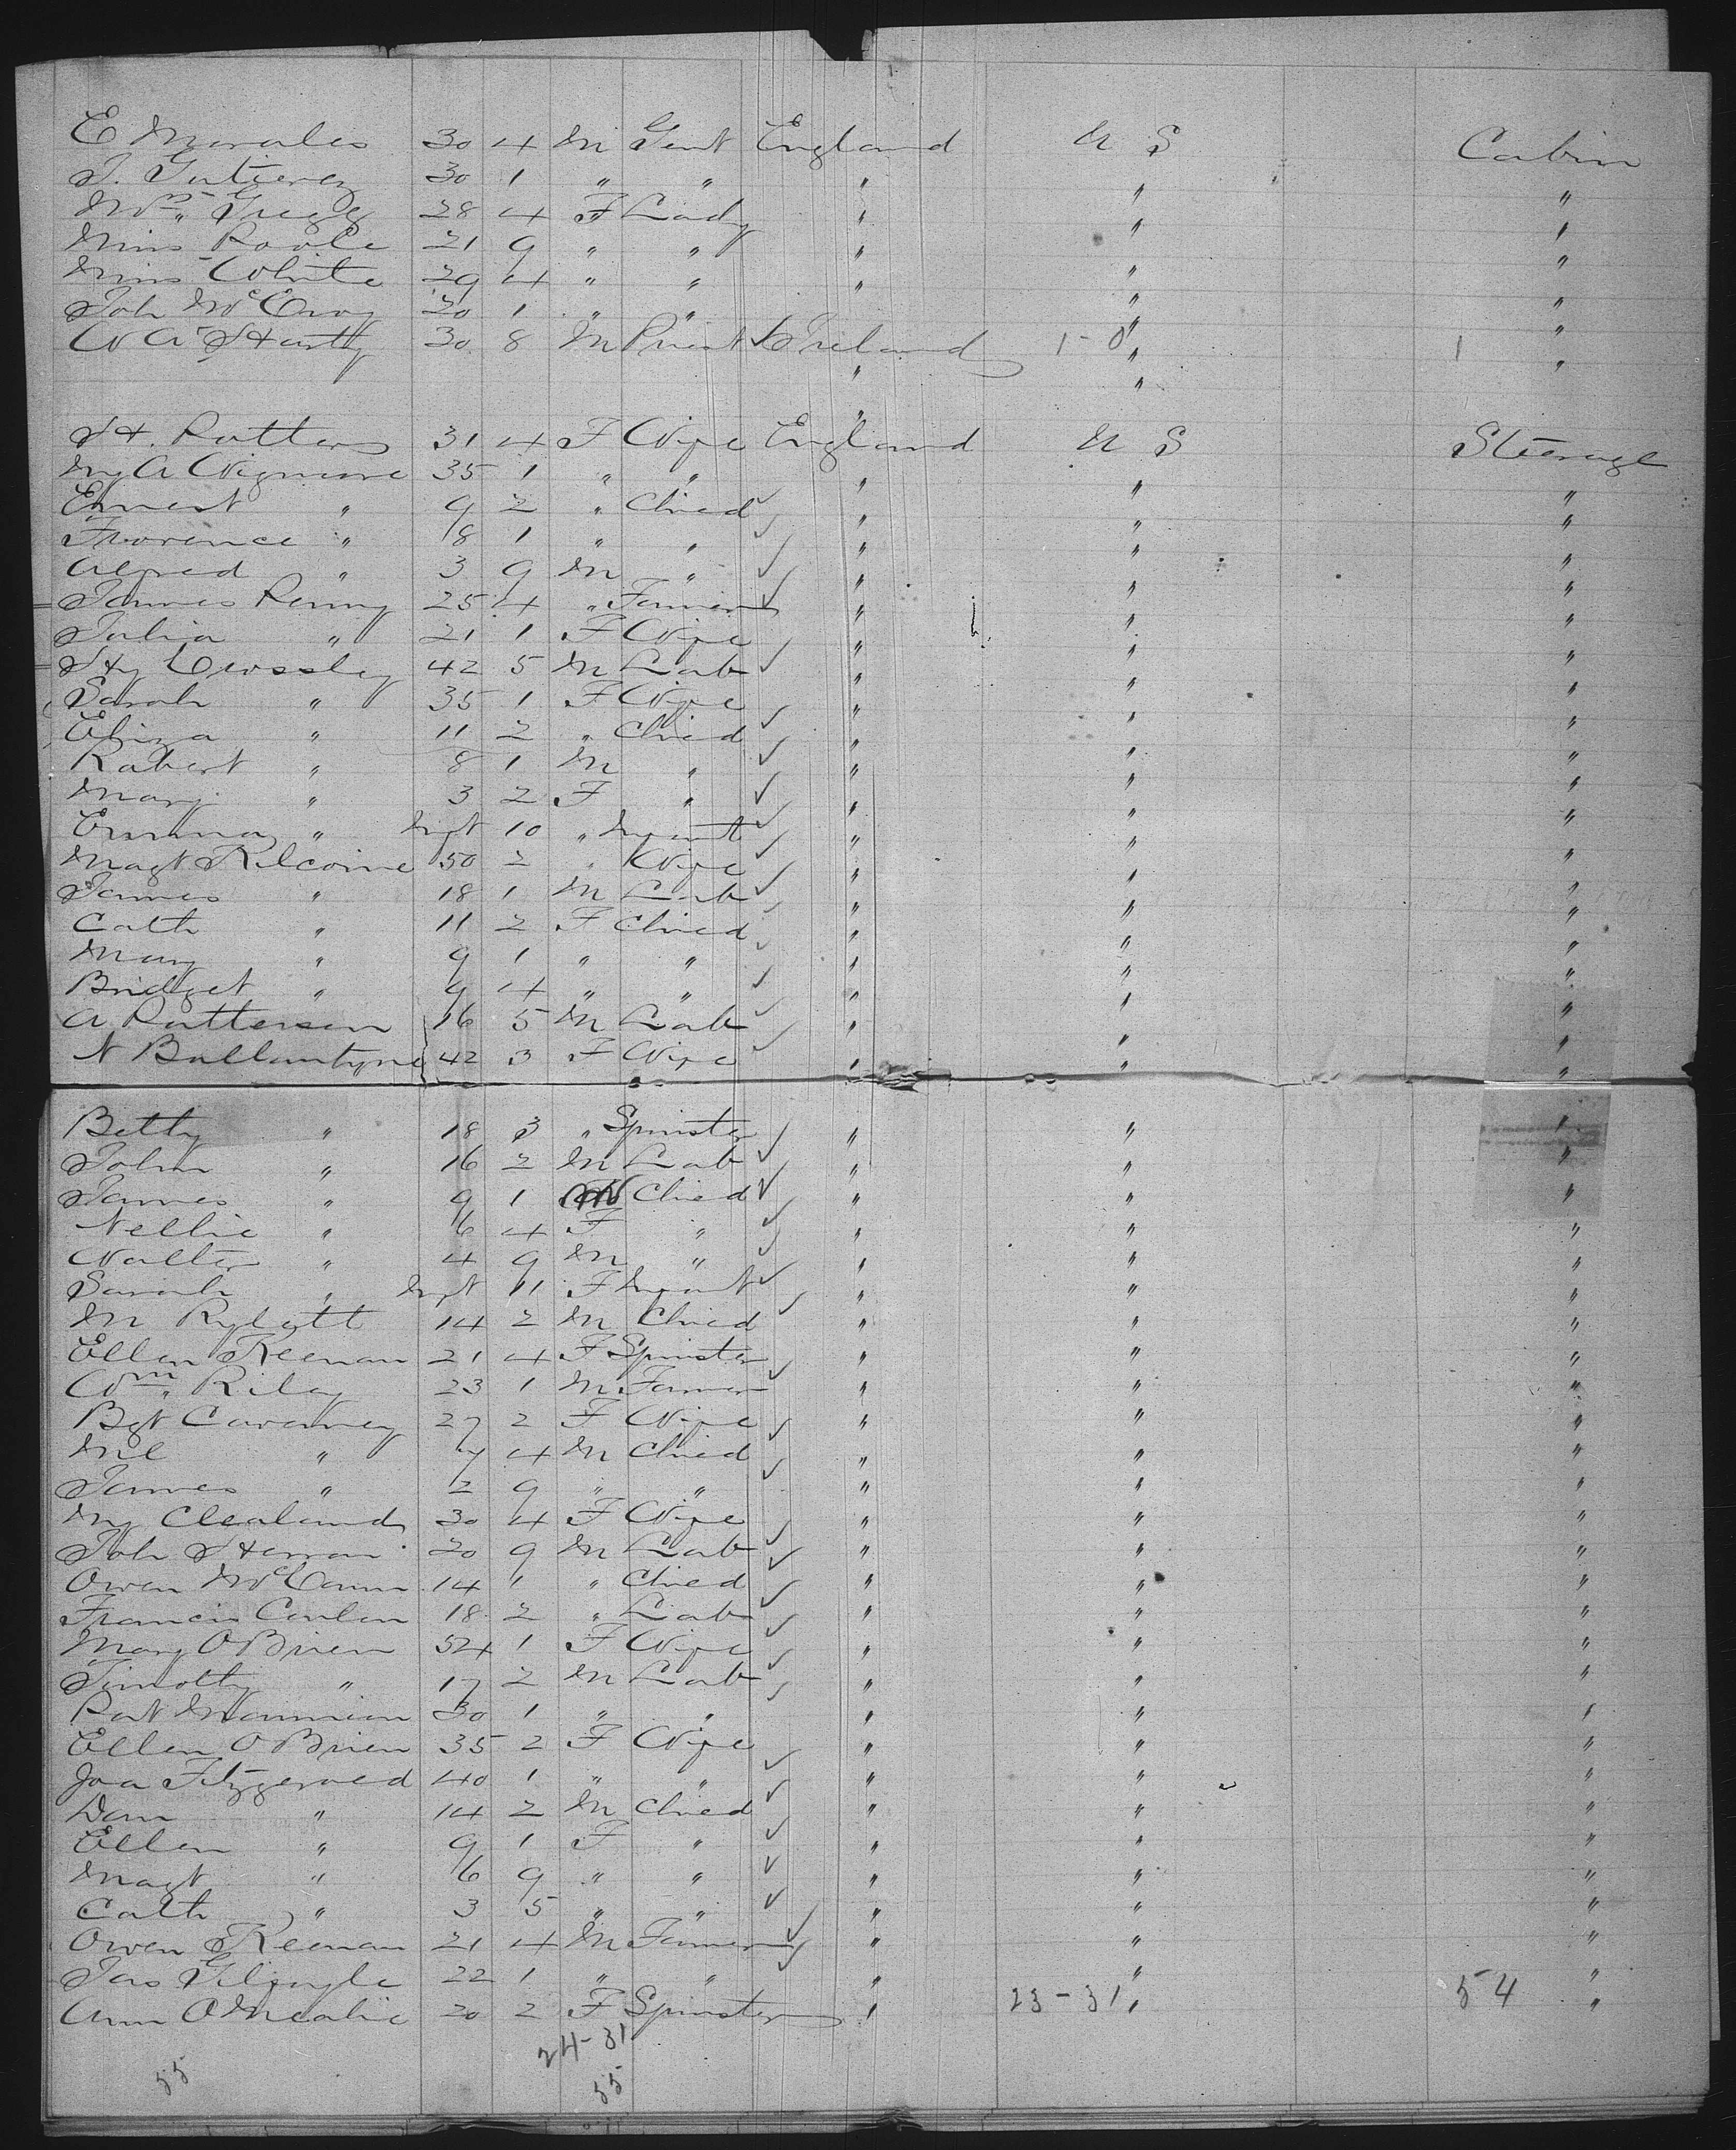 E Morales 30 4 M Gent England U S Cabin
J. Gutierez 30 1 " " " " "
Mrs Gregg 28 4 F Lady " " "
Miss Poole 21 9 " " " " "
Miss White 29 4 " " " " "
Joh McEvoy 20 1 " " " "
W A Hartty 30 8 M Priest Ireland 1-0 " 1 "
" "
"
H. Patters 31 4 F Wife England U S Steerage
My A Wigmore 35 1 " " " " "
Ernest " 9 2 " Child " " "
Florence " 8 1 " " " " "
Alfred " 3 9 M " " " "
James Penny 25 4 " Farmer " " "
Julia " 21 1 F Wife " " "
Hy Crossley 42 5 M Lab " " "
Sarah " 35 1 F Wife " " "
Eliza " 11 2 " Child " " "
Robert " 8 1 M " " " "
Mary " 3 2 F " " " "
Emma " Inft 10 " Infant " " "
Magt Kilcoine 50 2 " Wife " " "
James " 18 1 M Lab " " "
Cath " 11 2 F Child " " "
Mary " 9 1 " " " " "
Bridget " 9 4 " " " " "
A Patterson 16 5 M Lab " " "
N Ballantyne 42 3 F Wife " " "
Betty " 18 3 " Spinster " " "
John " 16 2 M Lab " " "
James " 9 1 M Child " " "
Nellie " 6 4 F " " " "
Walter " 4 9 M " " " "
Sarah " Inft 11 F Infant " " "
M Rylott 14 2 M Child " " "
Ellen Keenan 21 4 F Spinster " " "
Wm Riley 23 1 M Farmer " " "
Bgt Caveney 27 2 F Wife " " "
Ml " 7 4 M Child " " "
James " 2 9 " " " " "
My Clealand 30 4 F Wife " " "
Joh Herron 20 9 M Lab " " "
Owen McCann 14 1 " Child " " "
Francis Conlon 18 2 " Lab " " "
Mary O'Brien 54 1 F Wife " " "
Timothy " 17 2 M Lab " " "
Pat Mannion 30 1 " " " " "
Ellen O'Brien 35 2 F Wife " " "
Joa Fitzgerald 40 1 " " " " "
Dan " 14 2 M Child " " "
Ellen " 9 1 F " " " "
Magt " 6 9 " " " " "
Cath " 3 5 " " " " "
Owen Keenan 21 4 M Farmer " " "
Jas Gilboyle 22 1 " " " " "
Ann O'Mealie 20 2 F Spinster " 23-31 " 54 "
24-31
55 55